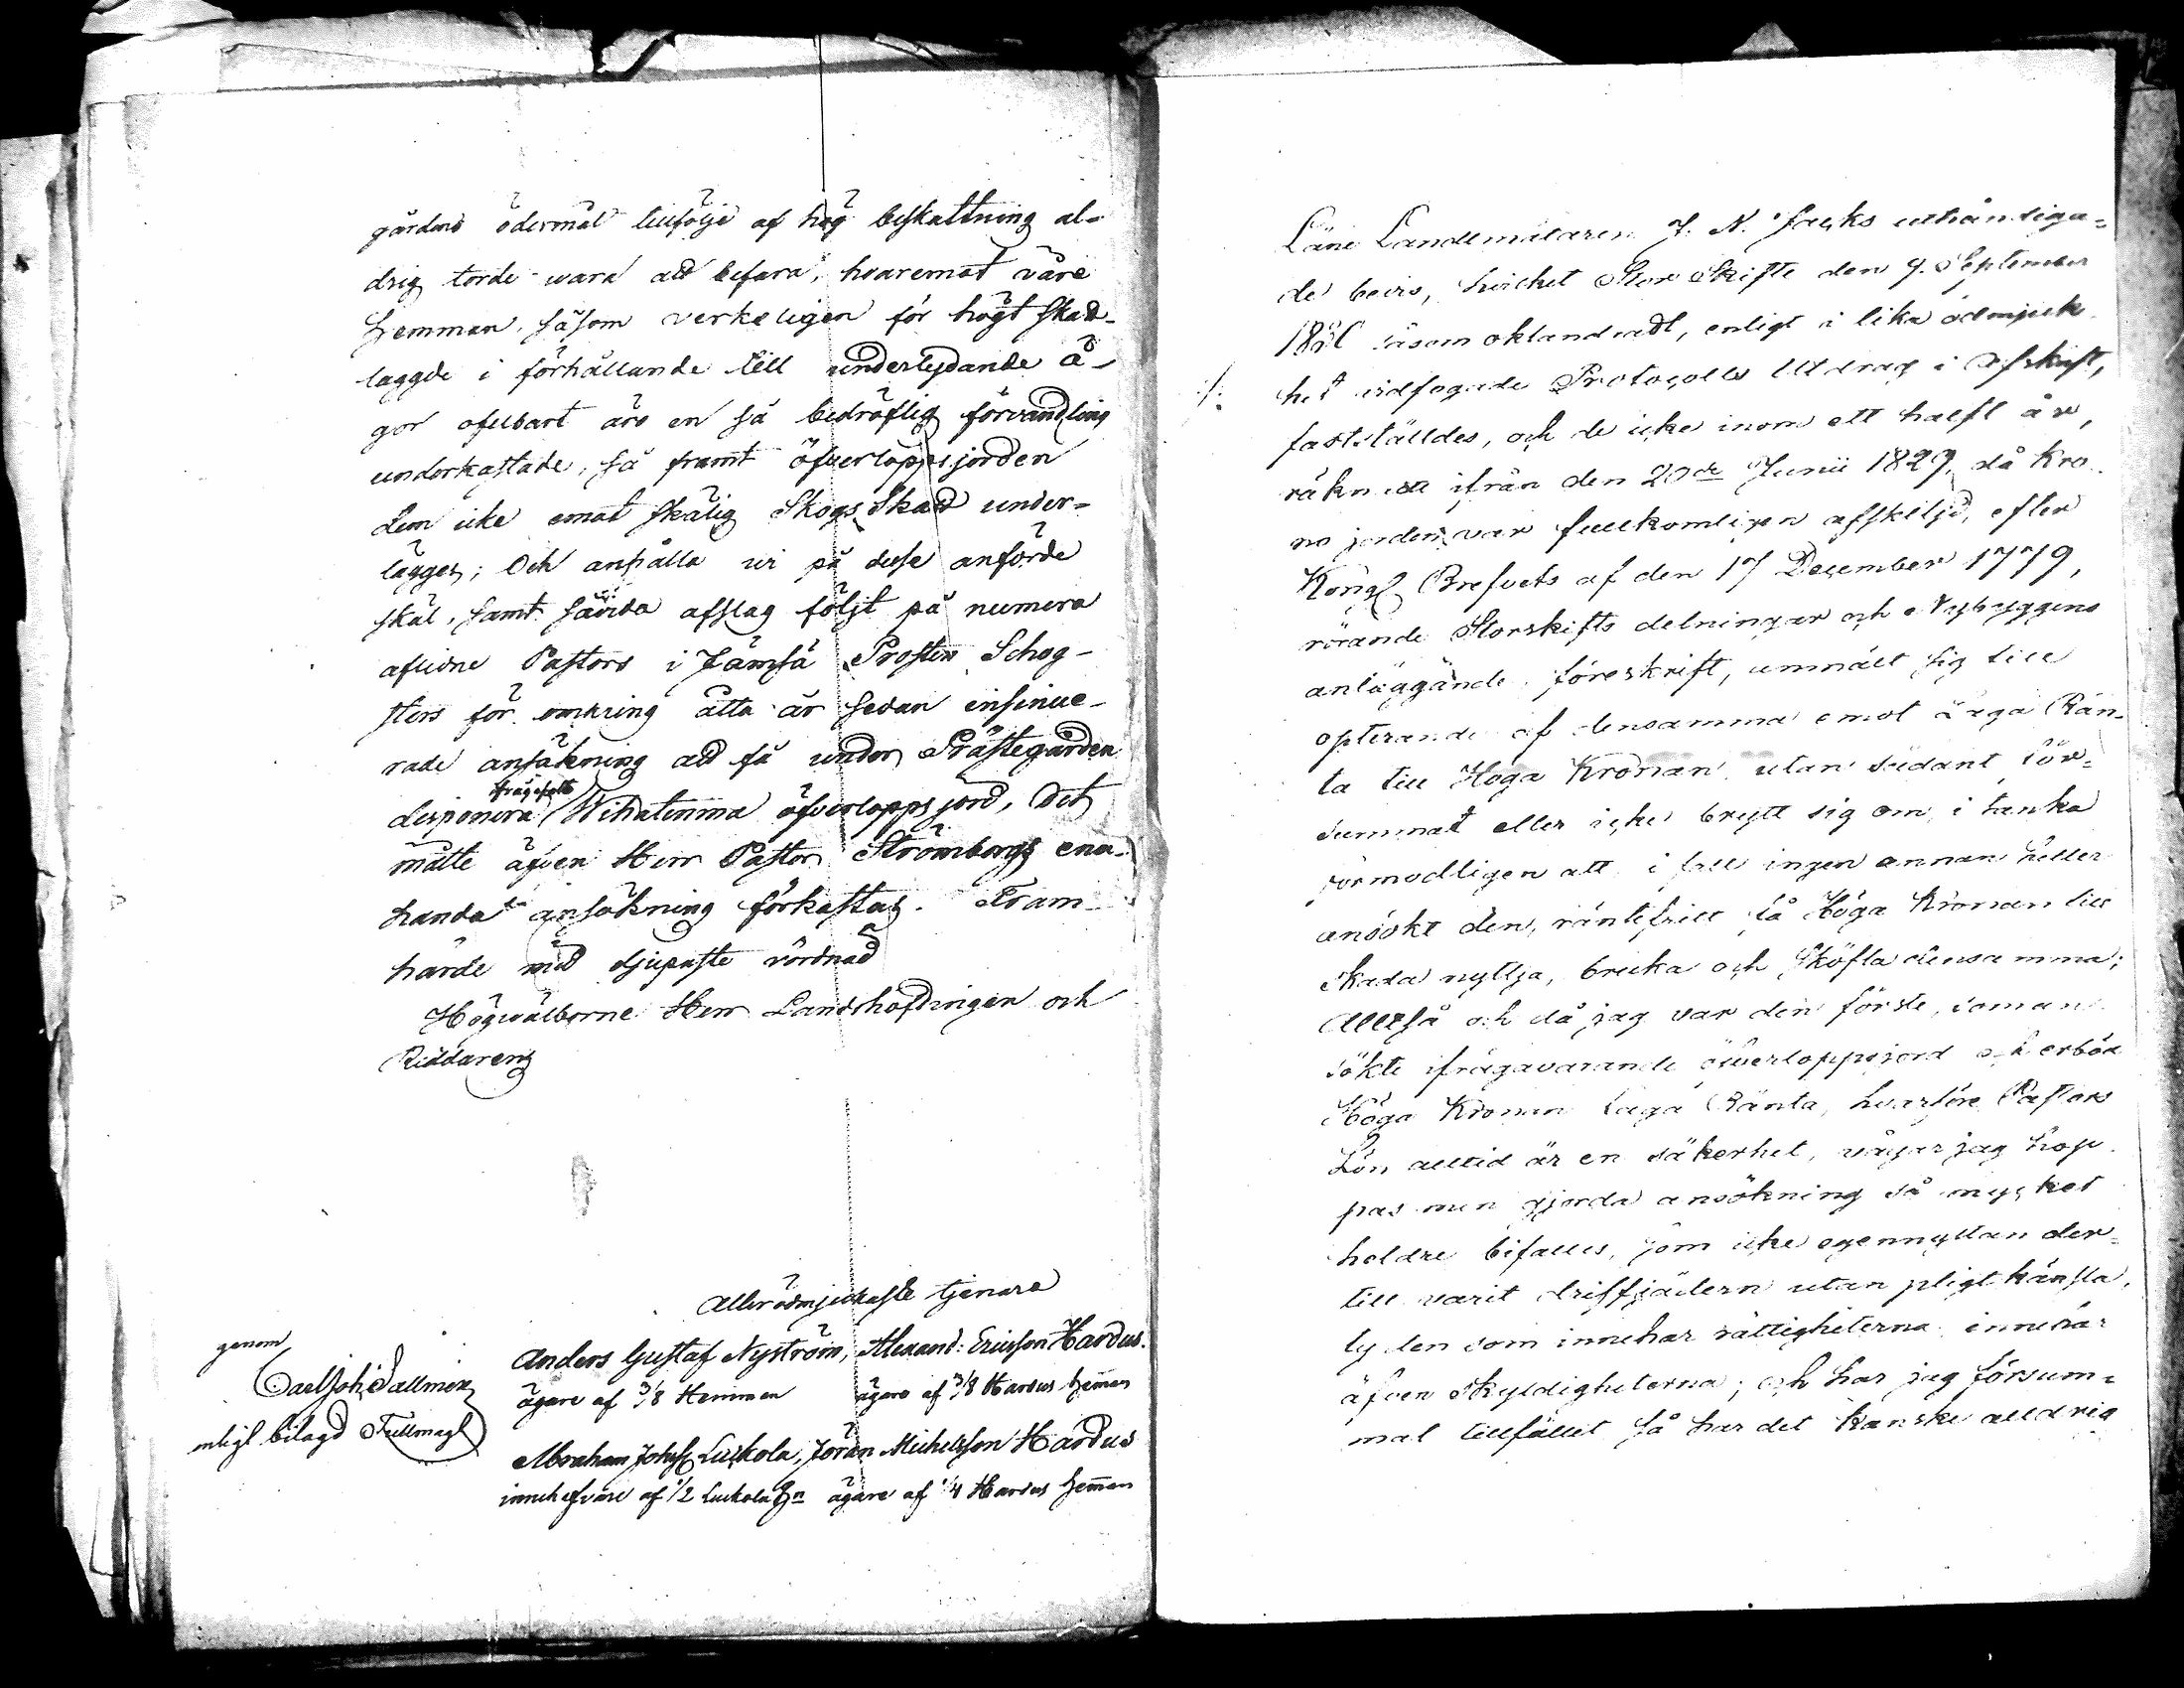 gårdens ödesmål tillfölje af hög beskattning al-
drig torde wara att befara, hvaremot våre
hemman, såsom verkeligen för högt skatt-
laggde i förhållande till underlydande ä-
gor ofelbart äro en så bedröflig förvandling
underkastade, så framt öfverloppsjorden
dem icke emot skälig Skogs Skatt under-
lägges; Och anhålla vi på desse anförde
skäl, samt såvida afslag följt på numera
aflidne Pastors i Jämsä Prosten Schog-
sters för omkring åtta år sedan insinue-
rade ansökning att få under Prästegården
frågesatte
disponera Wihatenma öfverlopps jord, det
måtte äfven Herr Pastor Strömborgs ena-
handa ansökning förkastas. Fram-
härde med djupaste vördnad
Högvälborne Herr Landshöfdingen och
Riddarens
Allerödmjukaste tjenare
genom
Carl Joh: Tallmén
enligt bilagd Fullmagt
Anders Gustaf Nyström, Alexand: Ericsson Hardus
ägare af 3/8 Hemman ägare af 3/8 Hardus Hemman
Abraham Johss Luckola, Jöran Michelsson Hardus
innehafvare af 1/2 Luckola Hn ägare af 1/4 Hardus Hemman
Läne Landtmätaren J. N. Jacks uthändiga=
de bevis, hvilket Stor Skifte den 9. September
18 såsom oklandradt, enligt i lika ödmjuk
./. het vidfogade Protocolls Utdrag i Afskrift,
fastställdes, och de icke inom ett halft år,
räknadt ifrån den 20de Junii 1829, då Kro-
no jorden var fullkomligen afskiljd, efter
Kongl Brefvets af den 17 December 1779,
rörande Storskifts delningar och Nybyggens
anläggände föreskrift, anmält sig till
opterande af densamma emot Laga Rän-
ta till Höga Kronan, utan sådant för-
summat eller icke brytt sig om, i tanka
förmodligen att i fall ingen annan heller
ansökt den, räntefritt få Höga Kronan till
skada nyttja, bruka och sköfla densamma;
Alltså och då jag var den förste, som an-
sökte ifrågavarande öfverloppsjord och erböd
Höga Kronan laga Ränta, hvarföre Pastors
Lön alltid är en säkerhet, vågar jag hop-
pas min gjorda ansökning så mycket
heldre bifalles, som icke egennyttan der=
till varit driffjädern utan pligtkänsla,
ty den som innehar rättigheterna innehar
äfven skyldigheterna; och har jag försum=
mat tillfället så har det kanske alldrig